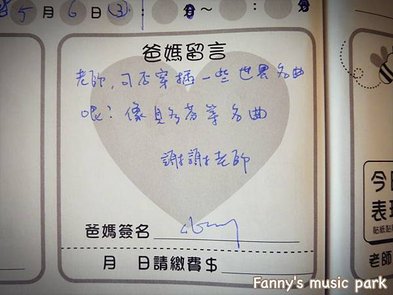 5月6日③ 分～ : 分
爸媽留言
老師,可否穿插一些世界名曲
呢?像貝多芬等名曲
謝謝老師
爸媽簽名
月 日請繳費$
今日
表現
貼紙點
老師
Fanny's music park